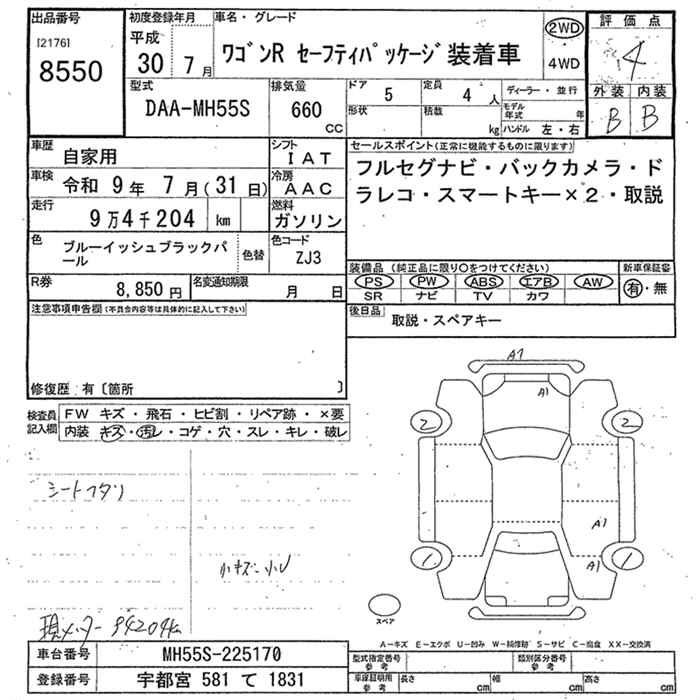 出品番号
[2176]
8550
初度登録年月
平成
30 7月
車名・グレード
ワゴンR セーフティパッケージ装着車
2WD
4WD
評価点
4
外装 内装
B B
型式
DAA-MH55S
排気量
660
CC
ドア
5
定員
4 人
形状
積載
kg
ディーラー・並行
モデル年式 年
ハンドル 左・右
車歴
自家用
シフト
IAT
車検
令和 9年 7月(31日)
冷房
AAC
走行
9万4千204 km
燃料
ガソリン
色
ブルーイッシュブラックパール
色替
色コード
ZJ3
R券
8,850 円
名変通知期限
月 日
セールスポイント(正常に機能するものに限ります)
フルセグナビ・バックカメラ・ド
ラレコ・スマートキー×2・取説
装備品(純正品に限り○をつけてください)
PS PW ABS エアB AW
SR ナビ TV カワ
新車保証書
有・無
後日品
取説・スペアキー
注意事項申告欄(不具合内容等は具体的に記入して下さい)
修復歴:有〔箇所 〕
検査員記入欄
FW キズ・飛石・ヒビ割・リペア跡・×要
内装 キズ・汚レ・コゲ・穴・スレ・キレ・破レ
シートフタリ
小キズ・小U
現メーター 94204km
A1
A1
2
2
A1
A1
1
1
スペア
A-キズ E-エクボ U-凹み W-補修跡 S-サビ C-腐食 XX-交換済
車台番号
MH55S-225170
登録番号
宇都宮 581 て 1831
型式指定番号
参考
類別区分番号
参考
車庫証明用
参考
長さ cm
幅 cm
高さ cm